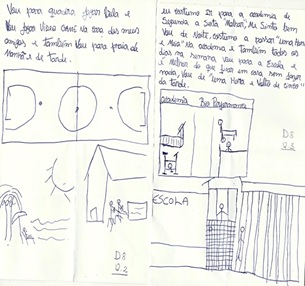 Vou para quadra jogar bola e
Vou jogar Video Game na casa dos meus
amigos e também vou para praia de
manhã e de tarde.
D8
Q.2
eu costumo ir para a academia de
Segunda a Sexta "Malhar", Me Sinto bem
Vou de Noite, costumo a passar "uma Hora
e Meia" na academia, e também todos os
dias na semana, vou para a Escola é
Melhor do que ficar em casa sem fazer
nada, Vou de "uma Hora e Volto às cinco"
da tarde.
academia Bio Performance
ESCOLA
D8
Q.2